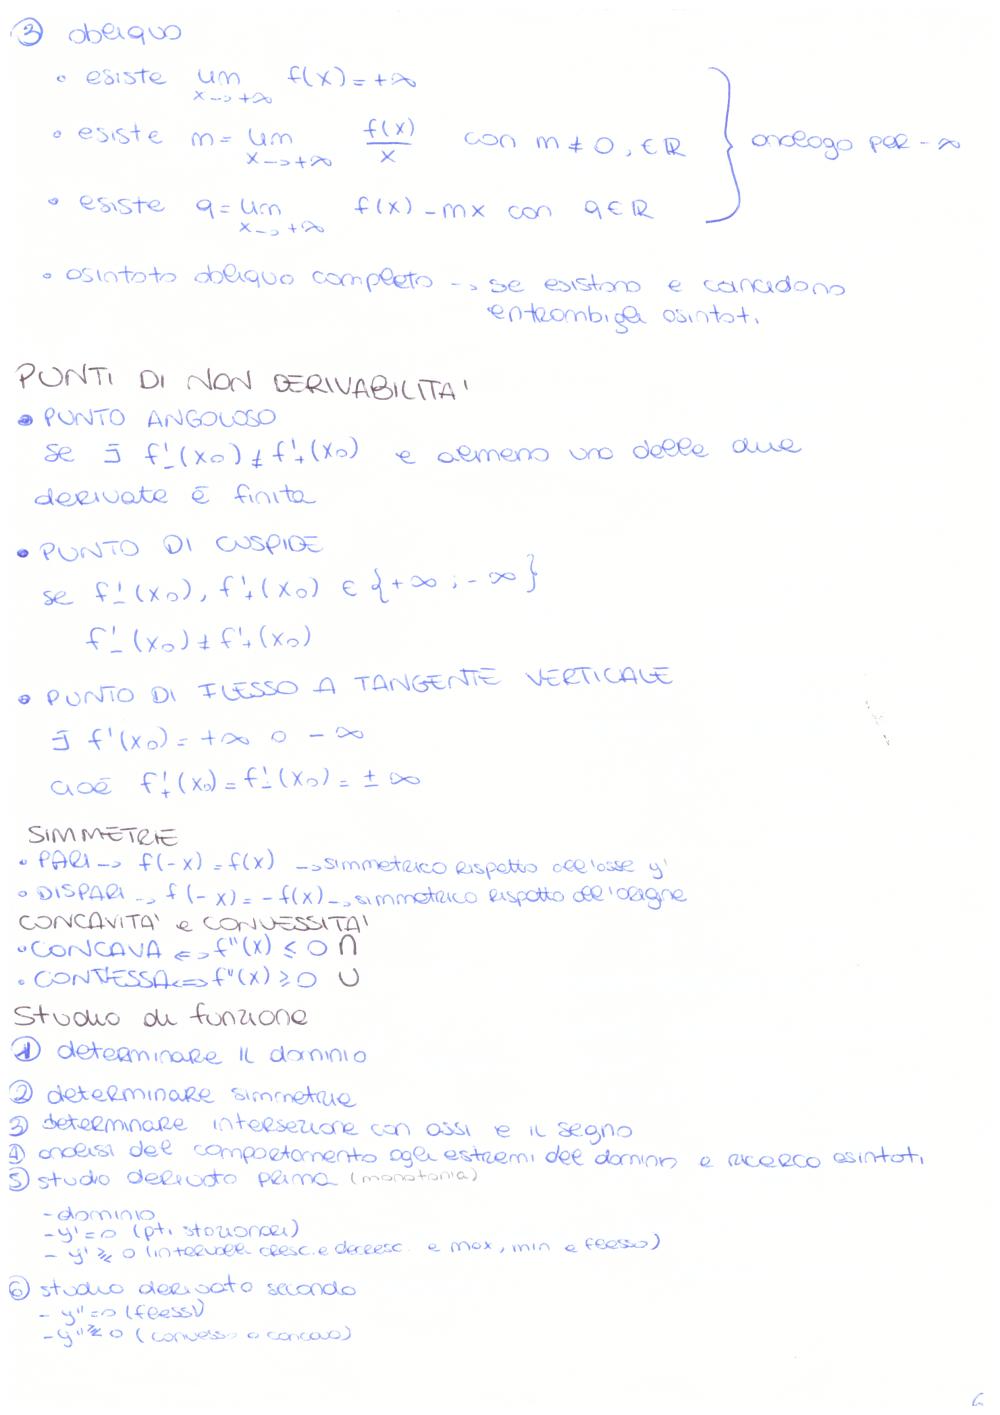 ③ obliquo
• esiste lim x→+∞ f(x) = +∞
• esiste m = lim x→+∞ f(x)/x con m ≠ 0, ∈ ℝ } analogo per -∞
• esiste q = lim x→+∞ f(x) - mx con q ∈ ℝ
• asintoto obliquo completo → se esistono e coincidono
entrambi gli asintoti
PUNTI DI NON DERIVABILITA'
• PUNTO ANGOLOSO
se ∃ f'₋(x₀) ≠ f'₊(x₀) e almeno una delle due
derivate è finita
• PUNTO DI CUSPIDE
se f'₋(x₀), f'₊(x₀) ∈ {+∞ ; -∞}
f'₋(x₀) ≠ f'₊(x₀)
• PUNTO DI FLESSO A TANGENTE VERTICALE
∃ f'(x₀) = +∞ o -∞
cioè f'₊(x₀) = f'₋(x₀) = ± ∞
SIMMETRIE
• PARI → f(-x) = f(x) → simmetrico rispetto all'asse y'
• DISPARI → f(-x) = -f(x) → simmetrico rispetto all'origine
CONCAVITA' e CONVESSITA'
• CONCAVA ⇔ f''(x) ≤ 0 ∩
• CONVESSA ⇔ f''(x) ≥ 0 ∪
Studio di funzione
① determinare il dominio
② determinare simmetrie
③ determinare intersezione con assi e il segno
④ analisi del comportamento agli estremi del dominio e ricerca asintoti
⑤ studio derivata prima (monotonia)
- dominio
- y' = 0 (pti stazionari)
- y' ≷ 0 (intervalli cresc. e decresc. e max, min e flesso)
⑥ studio derivata seconda
- y'' = 0 (flessi)
- y'' ≷ 0 (convessa o concava)
6